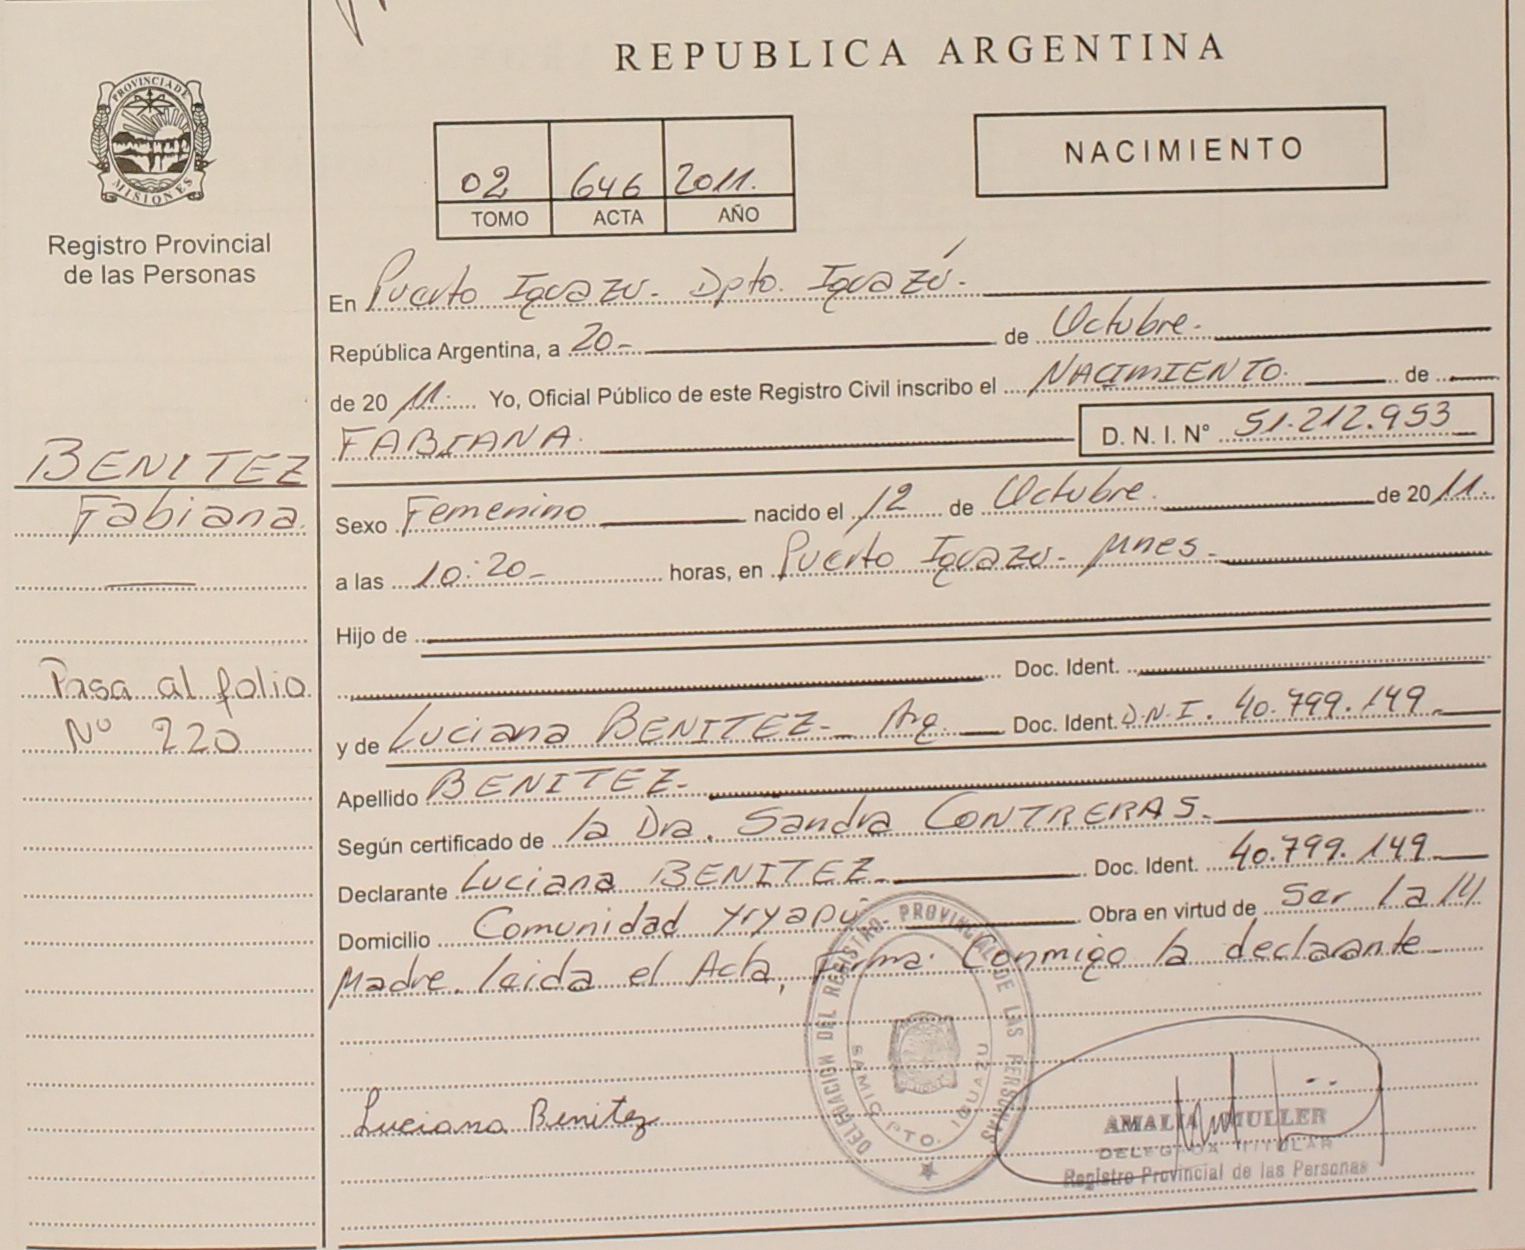 REPUBLICA ARGENTINA
PROVINCIA DE
MISIONES
Registro Provincial
de las Personas
02 646 2011.
TOMO ACTA AÑO
NACIMIENTO
En Puerto Iguazu - Dpto. Iguazú -
República Argentina, a 20- de Octubre.
de 20 11. Yo, Oficial Público de este Registro Civil inscribo el NACIMIENTO de
FABIANA. D. N. I. N° 51.212.953
BENITEZ
Fabiana.
Sexo Femenino nacido el 12 de Octubre. de 20 11.
a las 10:20- horas, en Puerto Iguazu - Mnes.
Hijo de
Doc. Ident.
Pasa al folio
Nº 220
y de Luciana BENITEZ - Arg. Doc. Ident. D.N.I. 40.799.149
Apellido BENITEZ-
Según certificado de la Dra. Sandra CONTRERAS.
Declarante Luciana BENITEZ Doc. Ident. 40.799.149
Domicilio Comunidad Yryapú Obra en virtud de ser la
Madre. leida el Acta, Firma Conmigo la declarante
DELEGACION DEL REGISTRO PROVINCIAL DE LAS PERSONAS
SAMIC PTO. IGUAZU
Luciana Benitez
AMALIA MULLER
DELEGADA TITULAR
Registro Provincial de las Personas